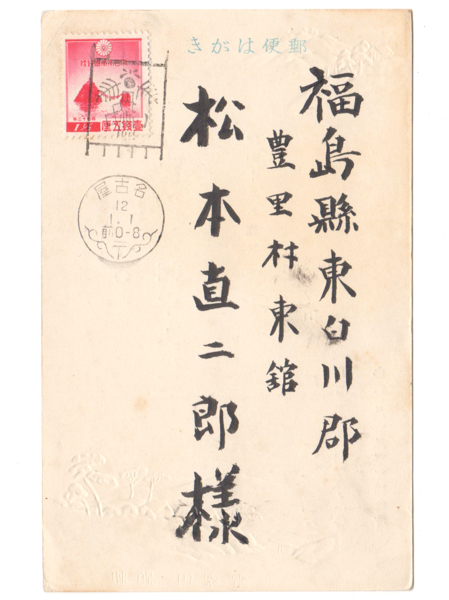 きがは便郵
福島縣東白川郡
豊里村東舘
松本直二郎様
壹錢五厘
名古屋
12
1.1
前0-8